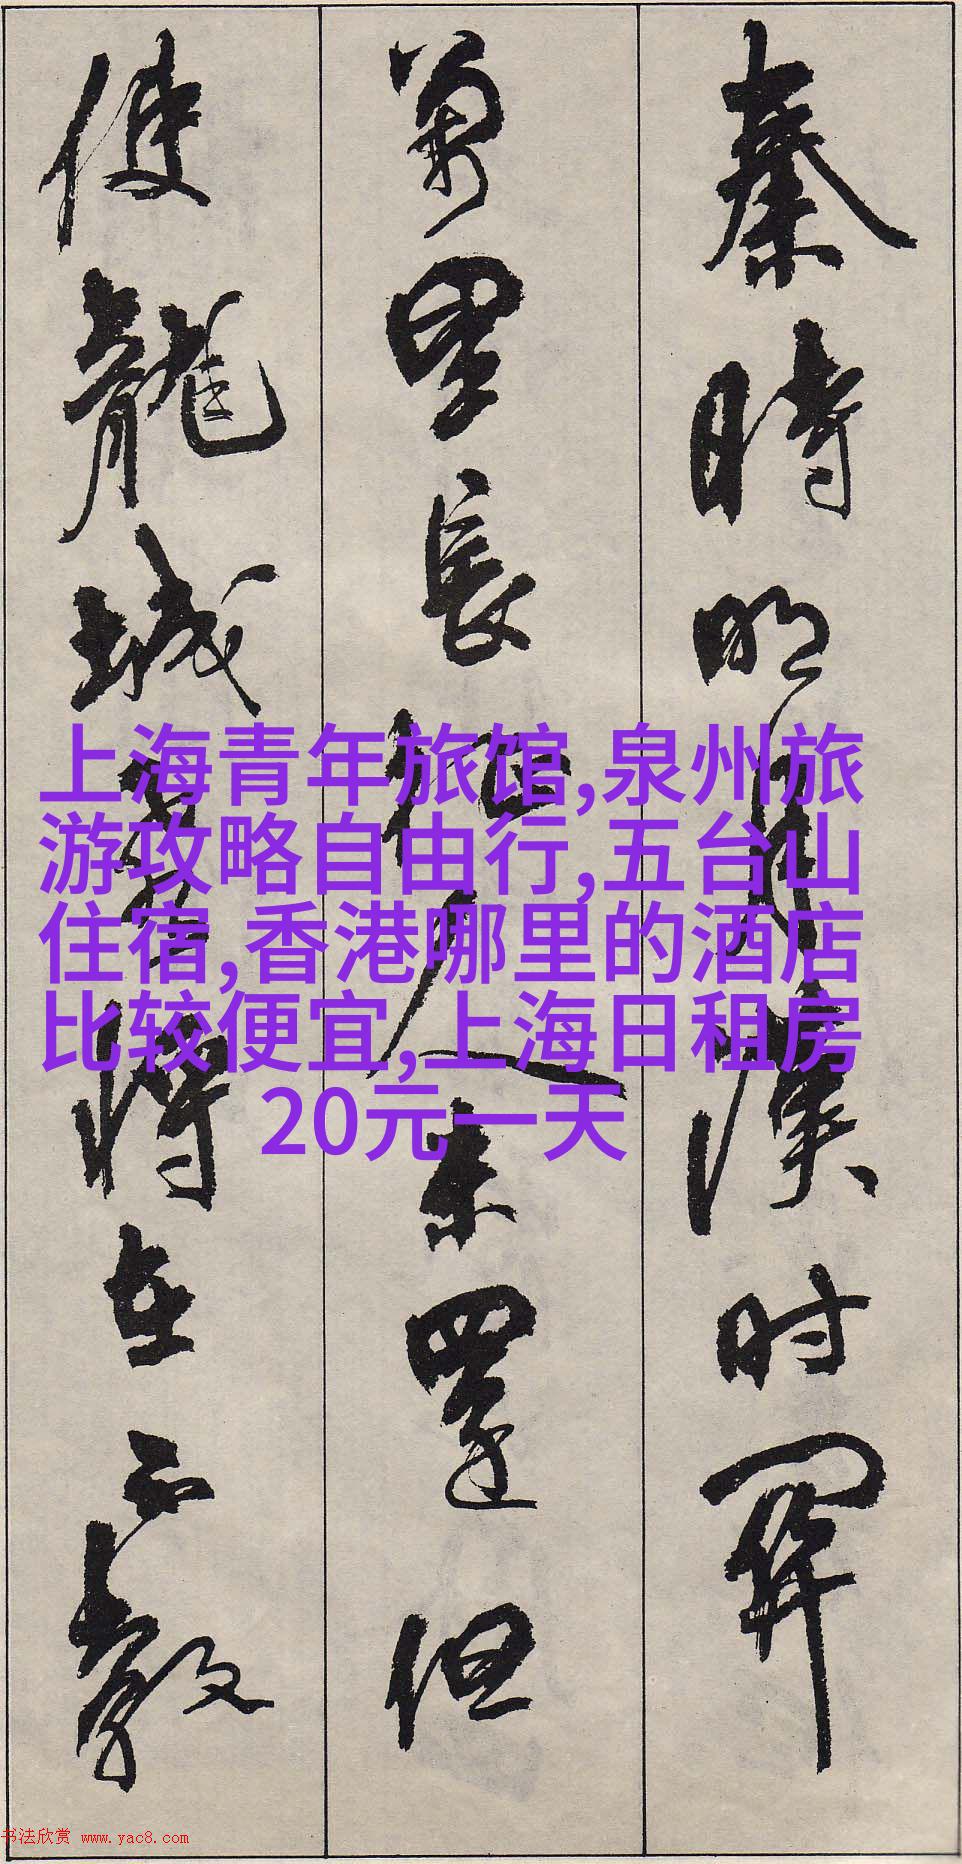 秦時明月漢時關
萬里長征人未還但
使龍城飛將在不教
上海青年旅馆,泉州旅
游攻略自由行,五台山
住宿,香港哪里的酒店
比较便宜,上海日租房
20元一天
书法欣赏 www.yac8.com